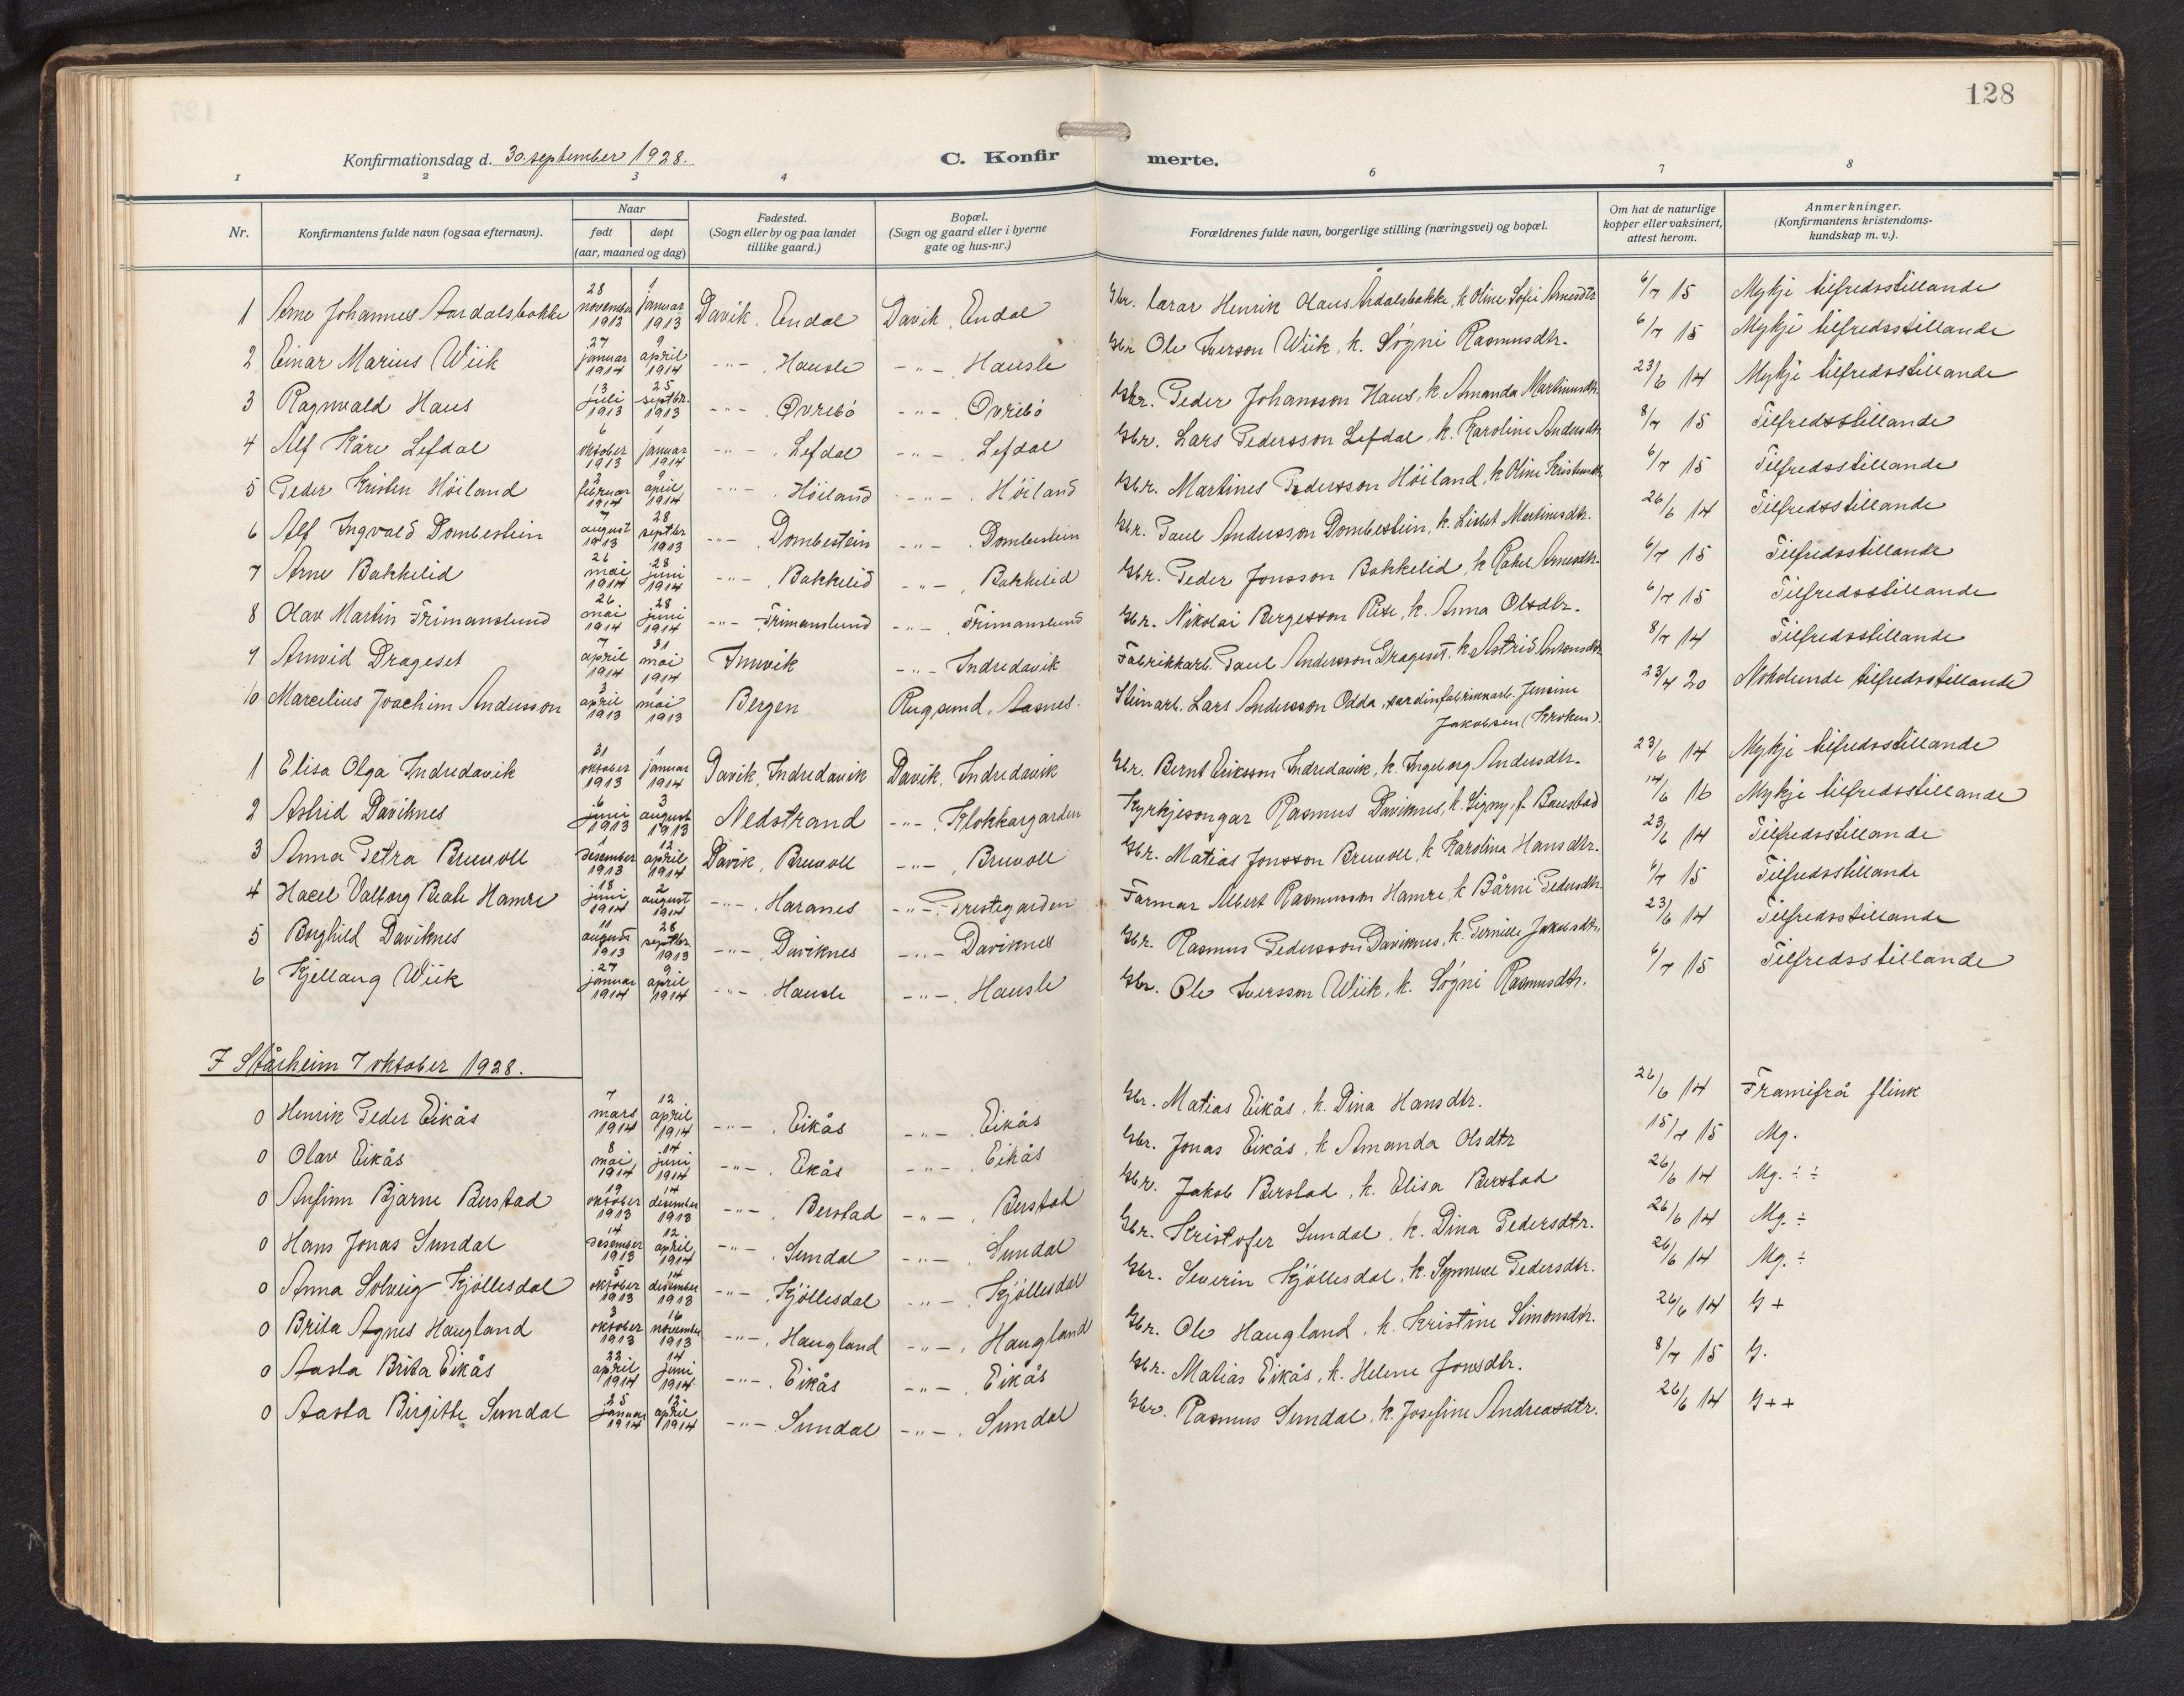 128
Konfirmationsdag d. 30 september 1928.
C. Konfirmerte.
1 2 3 4 6 7 8
Nr.
Konfirmantens fulde navn (ogsaa efternavn).
Naar
født døpt
(aar, maaned og dag)
Fødested.
(Sogn eller by og paa landet
tillike gaard.)
Bopæl.
(Sogn og gaard eller i byerne
gate og hus-nr.)
Forældrenes fulde navn, borgerlige stilling (næringsvei) og bopæl.
Om hat de naturlige
kopper eller vaksinert,
attest herom.
Anmerkninger.
(Konfirmantens kristendoms-
kundskap m. v.).
1 Arne Johannes Aardalsbakke 28 november 1913 1 januar 1913 Davik, Endal Davik, Endal Gbr. lærar Henrik Olaus Årdalsbakke, k. Oline Sofie Arnesdtr 6/7 15 Mykje tilfredsstillande
2 Einar Marius Wiik 27 januar 1914 9 april 1914 -"- , Hausle -"- , Hausle Gbr. Ole Iverson Wiik, k. Søgni Rasmusdtr. 6/7 15 Mykje tilfredsstillande
3 Ragnvald Haus 13 juli 1913 25 septbr. 1913 -"- , Øvrebö -"- , Øvrebö Gbr. Peder Johansson Haus, k. Amanda Martinusdtr. 23/6 14 Mykje tilfredsstillande
4 Alf Kåre Lefdal 6 oktober 1913 1 januar 1914 -"- , Lefdal -"- , Lefdal Gbr. Lars Pedersson Lefdal, k. Karoline Andersdtr. 8/7 15 Tilfredsstillande
5 Peder Kristen Höiland 2 februar 1914 9 april 1914 -"- , Höiland -"- , Höiland Gbr. Martines Pedersson Höiland, k. Oline Kristensdtr. 6/7 15 Tilfredsstillande
6 Alf Ingvald Dombestein 7 august 1913 28 septbr 1913 -"- , Dombestein -"- , Dombestein Gbr. Paul Andersson Dombestein, k. Lisbet Martinusdtr. 26/6 14 Tilfredsstillande
7 Arne Bakkelid 26 mai 1914 28 juni 1914 -"- , Bakkelid -"- , Bakkelid Gbr. Peder Jonsson Bakkelid, k. Rakel Arnesdtr. 6/7 15 Tilfredsstillande
8 Olav Martin Frimanslund 26 mai 1914 28 juni 1914 -"- Frimanslund -"- , Frimanslund Gbr. Nikolai Bergesson Rise, k. Anna Olsdtr. 6/7 15 Tilfredsstillande
9 Arnvid Drageset 7 april 1914 31 mai 1914 Innvik -"- Indredavik Fabrikkarb. Paul Andersson Drageset, k. Astrid Antonsdtr. 8/7 14 Tilfredsstillande
10 Marcelius Joachim Andersson 3 april 1913 1 mai 1913 Bergen Rugsund, Aasnes. Steinarb. Lars Andersson Odda, sardinfabrikkarb. Jensine
Jakobsen (Kroken). 23/4 20 Nokolunde tilfredsstillande
1 Elisa Olga Indredavik 31 oktober 1913 1 januar 1914 Davik, Indredavik Davik, Indredavik Gbr. Bernt Eriksson Indredavik, k. Ingeborg Andersdtr. 23/6 14 Mykje tilfredsstillande
2 Astrid Daviknes 6 juni 1913 3 august 1913 Nedstrand -"- , Klokkargarden Kyrkjesongar Rasmus Daviknes, k. Signy, f. Baustad 14/6 16 Mykje tilfredsstillande
3 Anna Petra Bruvoll 1 desember 1913 12 april 1914 Davik, Bruvoll -"- , Bruvoll Gbr. Matias Jonsson Bruvoll, k. Karolina Hansdtr. 23/6 14 Tilfredsstillande
4 Hacel Valborg Beate Hamre 18 juni 1914 2 august 1914 -"- , Haranes -"- , Prestegarden Farmar Albert Rasmusson Hamre, k. Bårni Pedersdtr. 6/7 15 Tilfredsstillande
5 Borghild Daviknes 11 august 1913 28 septbr. 1913 -"- , Daviknes -"- , Daviknes Gbr. Rasmus Pedersson Daviknes, k. Pernille Jakobsdtr. 23/6 14 Tilfredsstillande
6 Kjellaug Wiik 27 januar 1914 9 april 1914 -"- , Hausle -"- , Hausle Gbr. Ole Iversson Wiik, k. Søgni Rasmusdtr. 6/7 15 Tilfredsstillande
I Stårheim 7 oktober 1928.
0 Henrik Peder Eikås 7 mars 1914 12 april 1914 -"- , Eikås -"- , Eikås Gbr. Matias Eikås, k. Dina Hansdtr. 26/6 14 Framifrå flink
0 Olav Eikås 8 mai 1914 14 juni 1914 -"- , Eikås -"- , Eikås Gbr. Jonas Eikås, k Amanda Olsdtr 15/7 15 Mg.
0 Anfinn Bjarne Berstad 19 oktober 1913 14 desember 1913 -"- , Berstad -"- , Berstad Gbr. Jakob Berstad, k. Elisa Berstad 26/6 14 Mg. ÷ ÷
0 Hans Jonas Sundal 14 desember 1913 12 april 1914 -"- , Sundal -"- , Sundal Gbr. Kristofer Sundal, k. Dina Pedersdtr. 26/6 14 Mg. ÷
0 Anna Solveig Kjöllesdal 5 oktober 1913 14 desember 1913 -"- , Kjöllesdal -"- , Kjöllesdal Gbr. Severin Kjöllesdal, k. Synneve Pedersdtr. 26/6 14 Mg. ÷
0 Brita Agnes Haugland 3 oktober 1913 16 november 1913 -"- , Haugland -"- , Haugland Gbr. Ole Haugland, k. Kristine Simonsdtr. 26/6 14 G +
0 Aasta Brita Eikås 22 april 1914 14 juni 1914 -"- , Eikås -"- , Eikås Gbr. Matias Eikås, k. Helene Jonsdtr. 8/7 15 G.
0 Aasta Birgitte Sundal 25 januar 1914 12 april 1914 -"- Sundal -"- , Sundal Gbr. Rasmus Sundal, k. Josefine Andreasdtr. 26/6 14 G + +